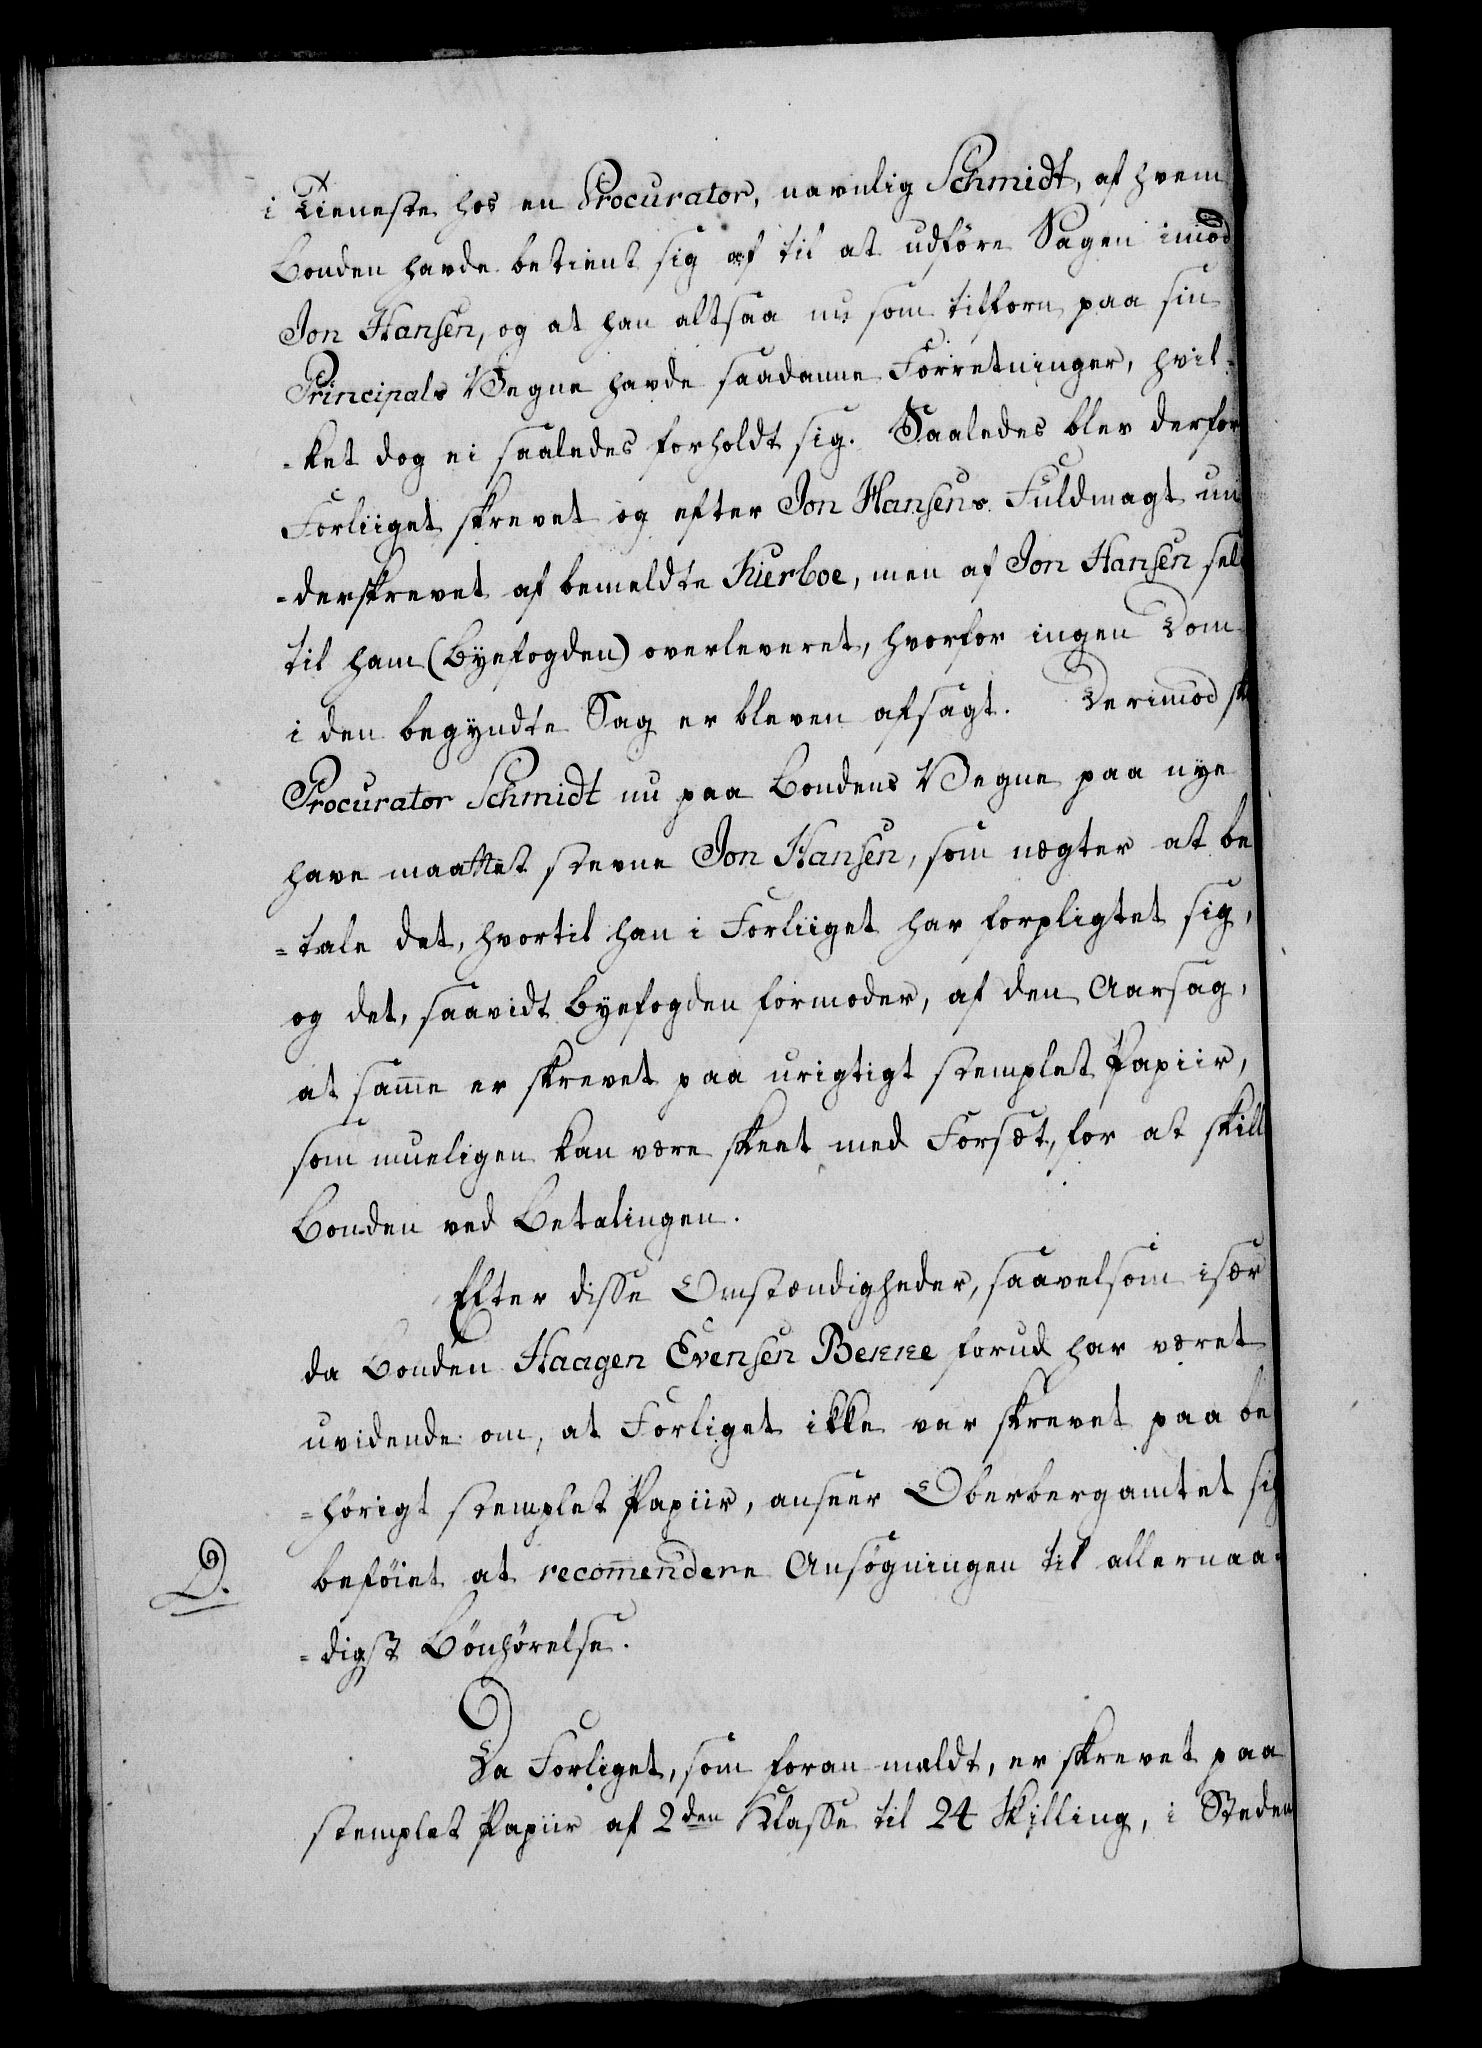 i Tieneste hos en Procurator, navnlig Schmidt, af hvem
Bonden havde betient sig af til at udføre Sagen imod
Jon Hansen, og at han altsaa nu som tilforn paa sin
Principals Vegne havde saadanne Forretninger, hvil-
-ket dog ei saaledes forholdt sig. Saaledes blev derfor
Forliiget skrevet og efter Jon Hansens Fuldmagt un
-derskrevet af bemeldte Kierboe, men af Jon Hansen selv
til ham (Byefogden) overleveret, hvorfor ingen Dom
i den begyndte Sag er bleven afsagt. Derimod sk
Procurator Schmidt nu paa Bondens Vegne paa nye
have maattet stevne Jon Hansen, som nægter at be
=tale det, hvortil han i Forliiget har forpligtet sig,
og det, saavidt Byefogden formoder, af den Aarsag,
at sam̄e er skrevet paa urigtigt stemplet Papiir,
som mueligen kan være skeet med Forsæt, for at skill
Bonden ved Betalingen.
Efter disse Omstændigheder, saavelsom især
da Bonden Haagen Evensen Bekke forud har været
uvidende om, at Forliget ikke var skrevet paa be
=hørigt stemplet Papiir, anseer Oberbergamtet sig
D. beføiet at recom̄endere Ansøgningen til allernaa-
=digst Bønhørelse.
Da Forliget, som foran meldt, er skrevet paa
stemplet Papiir af 2den Klasse til 24 Skilling, i Steden